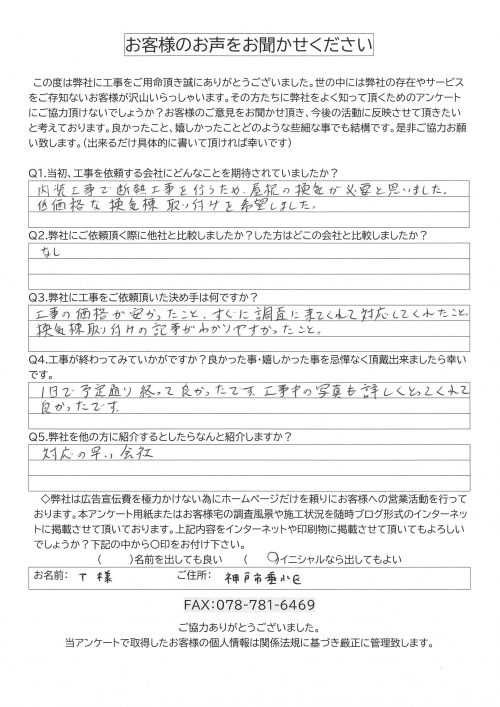 お客様のお声をお聞かせください
この度は弊社に工事をご用命頂き誠にありがとうございました。世の中には弊社の存在やサービス
をご存知ないお客様が沢山いらっしゃいます。その方たちに弊社をよく知って頂くためのアンケート
にご協力頂けないでしょうか？お客様のご意見をお聞かせ頂き、今後の活動に反映させて頂きたい
と考えております。良かったこと、嬉しかったことどのような些細な事でも結構です。是非ご協力お願
い致します。（出来るだけ具体的に書いて頂ければ幸いです）
Q1.当初、工事を依頼する会社にどんなことを期待されていましたか？
内装工事で断熱工事を行うため、屋根の換気が必要と思いました。
低価格な換気棟取り付けを希望しました。
Q2.弊社にご依頼頂く際に他社と比較しましたか？した方はどこの会社と比較しましたか？
なし
Q3.弊社に工事をご依頼頂いた決め手は何ですか？
工事の価格が安かったこと、すぐに調査に来てくれて対応してくれたこと。
換気棟取り付けの記事がわかりやすかったこと。
Q4.工事が終わってみていかがですか？良かった事・嬉しかった事を忌憚なく頂戴出来ましたら幸い
です。
1日で予定通り終って良かったです。工事中の写真も詳しくとってくれて
良かったです。
Q5.弊社を他の方に紹介するとしたらなんと紹介しますか？
対応の早い会社
◇弊社は広告宣伝費を極力かけない為にホームページだけを頼りにお客様への営業活動を行って
おります。本アンケート用紙またはお客様宅の調査風景や施工状況を随時ブログ形式のインターネッ
トに掲載させて頂いております。上記内容をインターネットや印刷物に掲載させて頂いてもよろしい
でしょうか？下記の中から〇印をお付け下さい。
（　　）名前を出しても良い　（　○）イニシャルなら出してもよい
お名前：　T　様　　ご住所：　神戸市垂水区
FAX:078-781-6469
ご協力ありがとうございました。
当アンケートで取得したお客様の個人情報は関係法規に基づき厳正に管理致します。